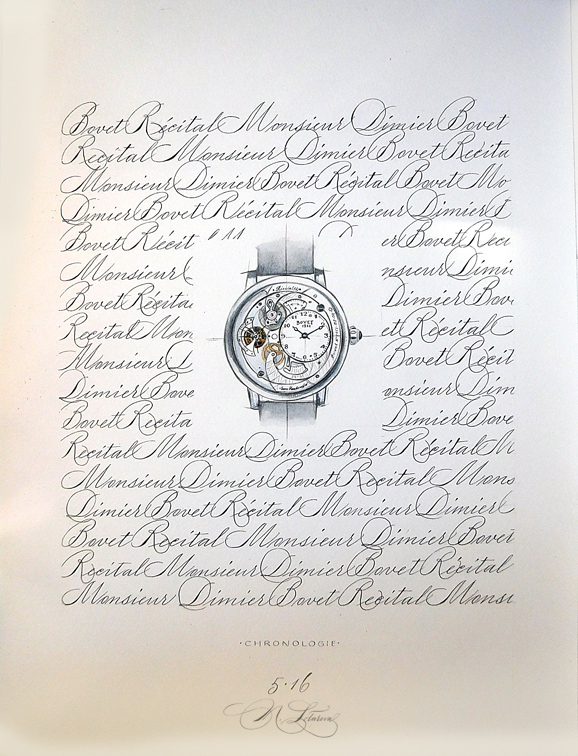 Bovet Récital Monsieur Dimier Bovet
Récital Monsieur Dimier Bovet Récita
Monsieur Dimier Bovet Récital Bovet Mo
Dimier Bovet Récital Monsieur Dimier
Bovet Récit er Bovet Réci
Monsieur nsieur Dimi
Bovet Récita Dimier Bov
Récital Mon et Récital
Monsieur D Bovet Récit
Dimier Bove onsieur Dim
Bovet Récita Dimier Bove
Récital Monsieur Dimier Bovet Récital M
Monsieur Dimier Bovet Récital Mons
Dimier Bovet Récital Monsieur Dimier
Bovet Récital Monsieur Dimier Bover
Récital Monsieur Dimier Bovet Récital
Monsieur Dimier Bovet Récital Monsi
BOVET
·CHRONOLOGIE·
5·16